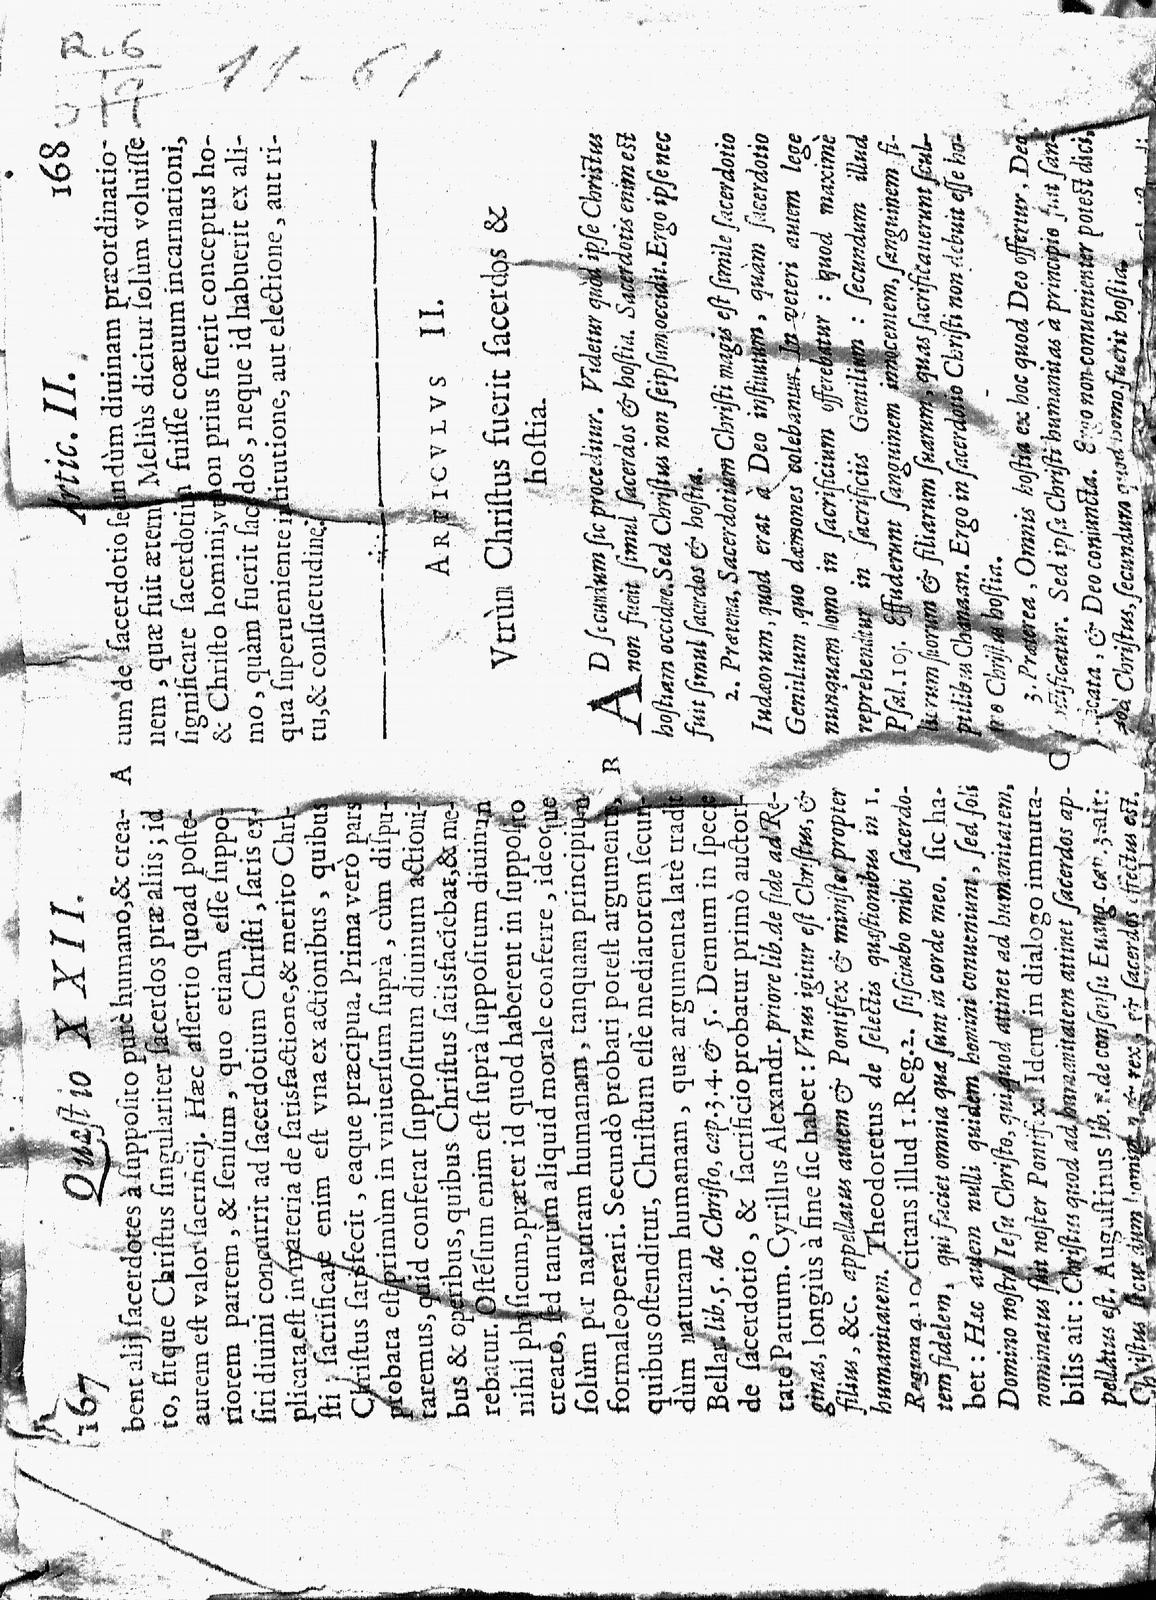 167
Quæſtio XXII.
bent alij ſacerdotes à ſuppoſito purè humano, & crea-
to, ſitque Chriſtus ſingulariter ſacerdos præ aliis; id
autem eſt valor ſacrificij. Hæc aſſertio quoad poſte-
riorem partem, & ſenſum, quo etiam eſſe ſuppo-
ſiti diuini concurrit ad ſacerdotium Chriſti, ſatis ex-
plicata eſt in materia de ſatisfactione, & merito Chri-
ſti, ſacrificare enim eſt vna ex actionibus, quibus
Chriſtus ſatisfecit, eaque præcipua. Prima verò pars
probata eſt primùm in vniuerſum ſuprà, cùm diſpu-
taremus, quid conferat ſuppoſitum diuinum actioni-
bus & operibus, quibus Chriſtus ſatisfaciebat, & me-
rebatur. Oſtéſum enim eſt ſuprà ſuppoſitum diuinum
nihil phyſicum, præter id quod haberent in ſuppoſito
creato, ſed tantùm aliquid morale conferre, ideoque
ſolùm per naturam humanam, tanquam principium
formale operari. Secundò probari poteſt argumentis,
quibus oſtenditur, Chriſtum eſſe mediatorem ſecun-
dùm naturam humanam, quæ argumenta latè tradit
Bellar. lib. 5. de Chriſto, cap. 3. 4. & 5. Demum in ſpecie
de ſacerdotio, & ſacrificio probatur primò auctori-
tate Patrum. Cyrillus Alexandr. priore lib. de fide ad Re-
ginas, longiùs à fine ſic habet: Vnus igitur eſt Chriſtus, &
filius, &c. appellatus autem & Pontifex & miniſter propter
humanitatem. Theodoretus de ſelectis quæſtionibus in 1.
Regum q. 10. citans illud 1. Reg. 2. ſuſcitabo mihi ſacerdo-
tem fidelem, qui faciet omnia quæ ſunt in corde meo. ſic ha-
bet: Hæc autem nulli quidem homini conueniunt, ſed ſoli
Domino noſtro Ieſu Chriſto, qui quod attinet ad humanitatem,
nominatus fuit noſter Pontifex. Idem in dialogo immuta-
bilis ait: Chriſtus quod ad humanitatem attinet ſacerdos ap-
pellatus eſt. Auguſtinus lib. de conſenſu Euang. cap. 3. ait:
Chriſtus ſecundum hominem & rex, & ſacerdos effectus eſt.
A
B
C
Artic. II.
168
tum de ſacerdotio ſecundùm diuinam præordinatio-
nem, quæ fuit æterna. Meliùs dicitur ſolùm voluiſſe
ſignificare ſacerdotium fuiſſe coæuum incarnationi,
& Chriſto homini, vt non prius fuerit conceptus ho-
mo, quàm fuerit ſacerdos, neque id habuerit ex ali-
qua ſuperueniente inſtitutione, aut electione, aut ri-
tu, & conſuetudine.
ARTICVLVS II.
Vtrùm Chriſtus fuerit ſacerdos &
hoſtia.
AD ſecundum ſic proceditur. Videtur quòd ipſe Chriſtus
non fuerit ſimul ſacerdos & hoſtia. Sacerdotis enim eſt
hoſtiam occidere. Sed Chriſtus non ſeipſum occidit. Ergo ipſe nec
fuit ſimul ſacerdos & hoſtia.
2. Præterea, Sacerdotium Chriſti magis eſt ſimile ſacerdotio
Iudæorum, quod erat à Deo inſtitutum, quàm ſacerdotio
Gentilium, quo dæmones colebantur. In veteri autem lege
nunquam homo in ſacrificium offerebatur: quod maximè
reprehenditur in ſacrificiis Gentilium: ſecundum illud
Pſal. 105. Effuderunt ſanguinem innocentem, ſanguinem fi-
liorum ſuorum & filiarum ſuarum, quas ſacrificauerunt ſcul-
ptilibus Chanaan. Ergo in ſacerdotio Chriſti non debuit eſſe ho-
mo Chriſtus hoſtia.
3. Præterea, Omnis hoſtia ex hoc quod Deo offertur, Deo
ſanctificatur. Sed ipſa Chriſti humanitas à principio fuit ſan-
ctificata, & Deo coniuncta. Ergo non conuenienter poteſt dici,
quòd Chriſtus, ſecundum quod homo, fuerit hoſtia.